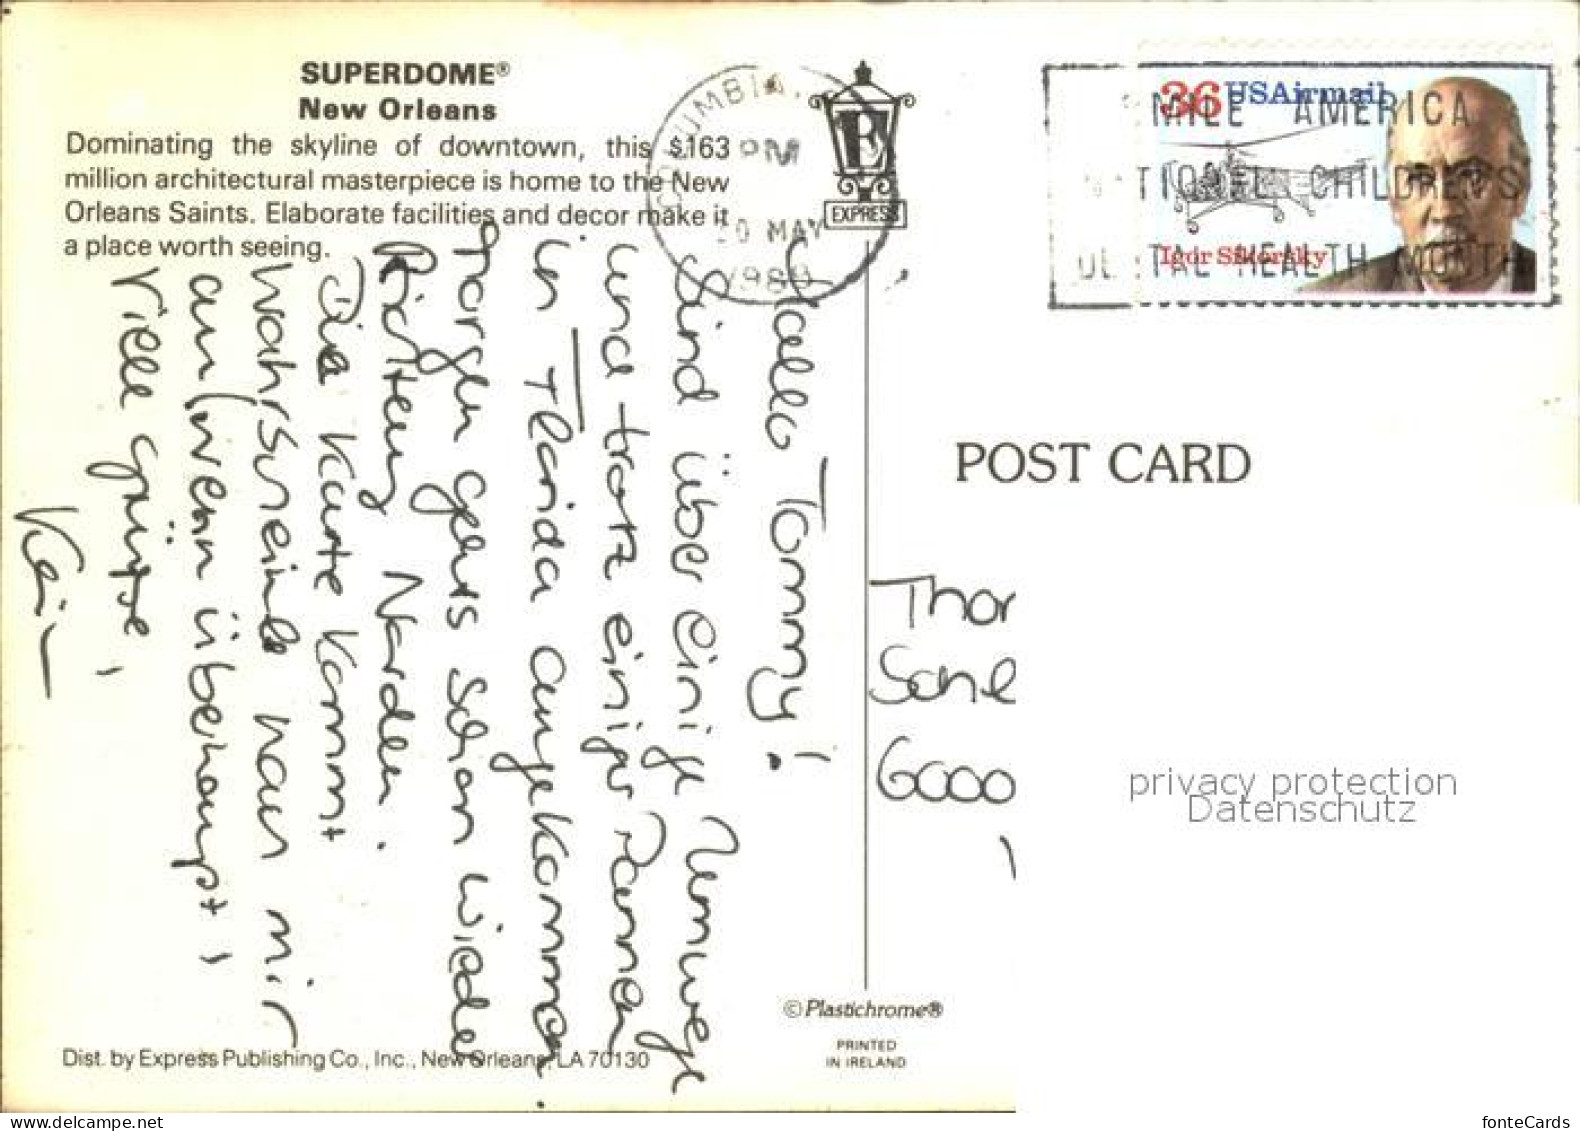 SUPERDOME®
New Orleans
Dominating the skyline of downtown, this $163
million architectural masterpiece is home to the New
Orleans Saints. Elaborate facilities and decor make it
a place worth seeing.
UMBIA,
PM
MAY
1988
E
EXPRESS
36 USAirmail
Igor Sikorsky
SMILE AMERICA
NATIONAL CHILDREN'S
DENTAL HEALTH MONTH
Hallo Tommy!
Sind über einige Umwege
und trotz einiger Pannen
in Florida angekommen.
Morgen gehts schon wieder
Richtung Norden.
Die Karte kommt
wahrscheinl. nach mir
an (wenn überhaupt),
Viele Grüße,
POST CARD
Thor
Schl
6000
privacy protection
Datenschutz
© Plastichrome®
PRINTED
IN IRELAND
Dist. by Express Publishing Co., Inc., New Orleans, LA 70130
fonteCards